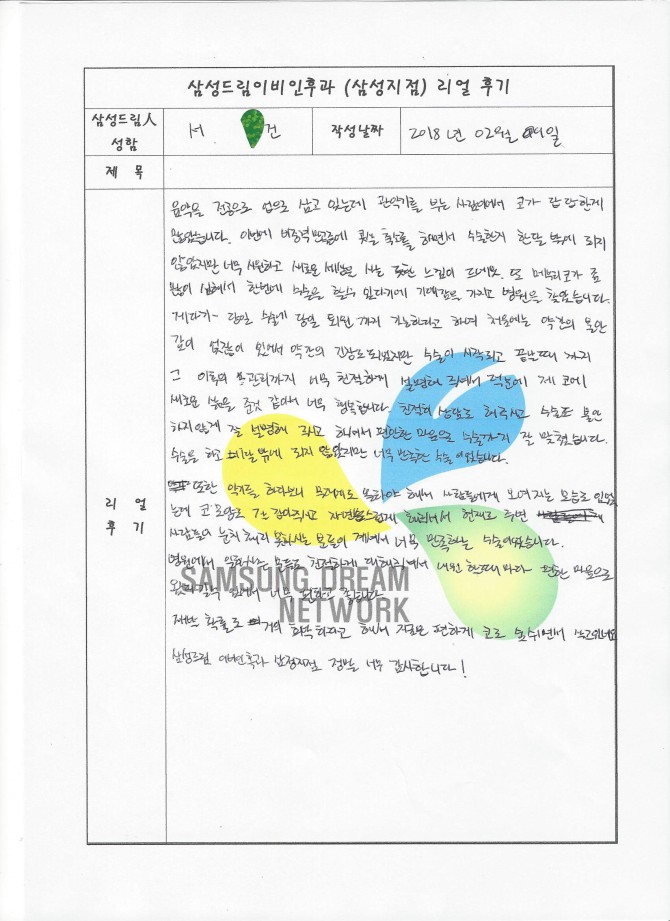 삼성드림이비인후과 (삼성지점) 리얼 후기
삼성드림人 성함
서 건
작성날짜
2018년 02월 일
제 목
리 얼 후 기
음악을 전공으로 업으로 삼고 있는데 관악기를 부는 사람에게서 코가 답답한게
많았습니다. 이번에 비중격만곡증에 휜코 축소를 하면서 수술한지 한달 밖에 되지
않았지만 너무 시원하고 새로운 세상을 사는 듯한 느낌이 드네요. 또 매부리코가 좀
많이 심해서 한번에 수술을 할수 있다기에 기대감을 가지고 병원을 찾았습니다.
게다가 당일 수술에 당일 퇴원까지 가능하다고 하여 처음에는 약간의 불안
감이 없잖이 있어서 약간의 긴장도 되었지만 수술이 시작되고 끝날때 까지
그 이후의 관리까지 너무 친절하게 설명해 줘서 덕분에 제 코에
새로운 삶을 준것 같아서 너무 행복합니다. 친절히 상담도 해주시고 수술도 불안
하지않게 잘 설명해 주시고 하여서 편안한 마음으로 수술까지 잘 마쳤습니다.
수술을 하고 한달 밖에 되지 않았지만 너무 만족한 수술이었습니다.
또한 악기를 하다보니 무대에도 올라야 해서 사람들에게 보여지는 모습도 있었
는데 코모양도 잡아주시고 자연스럽게 해주셔서 현재로 주변
사람들이 눈치 채지 못하시는 분들이 계셔서 너무 만족하는 수술이었습니다.
병원에서 일하시는 분들도 친절하게 대해주셔서 내원 할때마다 편한 마음으로
너무 편하고 좋습니다
재발 확률도 거의 희박하다고 해서 지금은 편하게 코로 숨쉬면서
삼성드림 이비인후과 삼성지점 정말 너무 감사합니다!
SAMSUNG DREAM
NETWORK